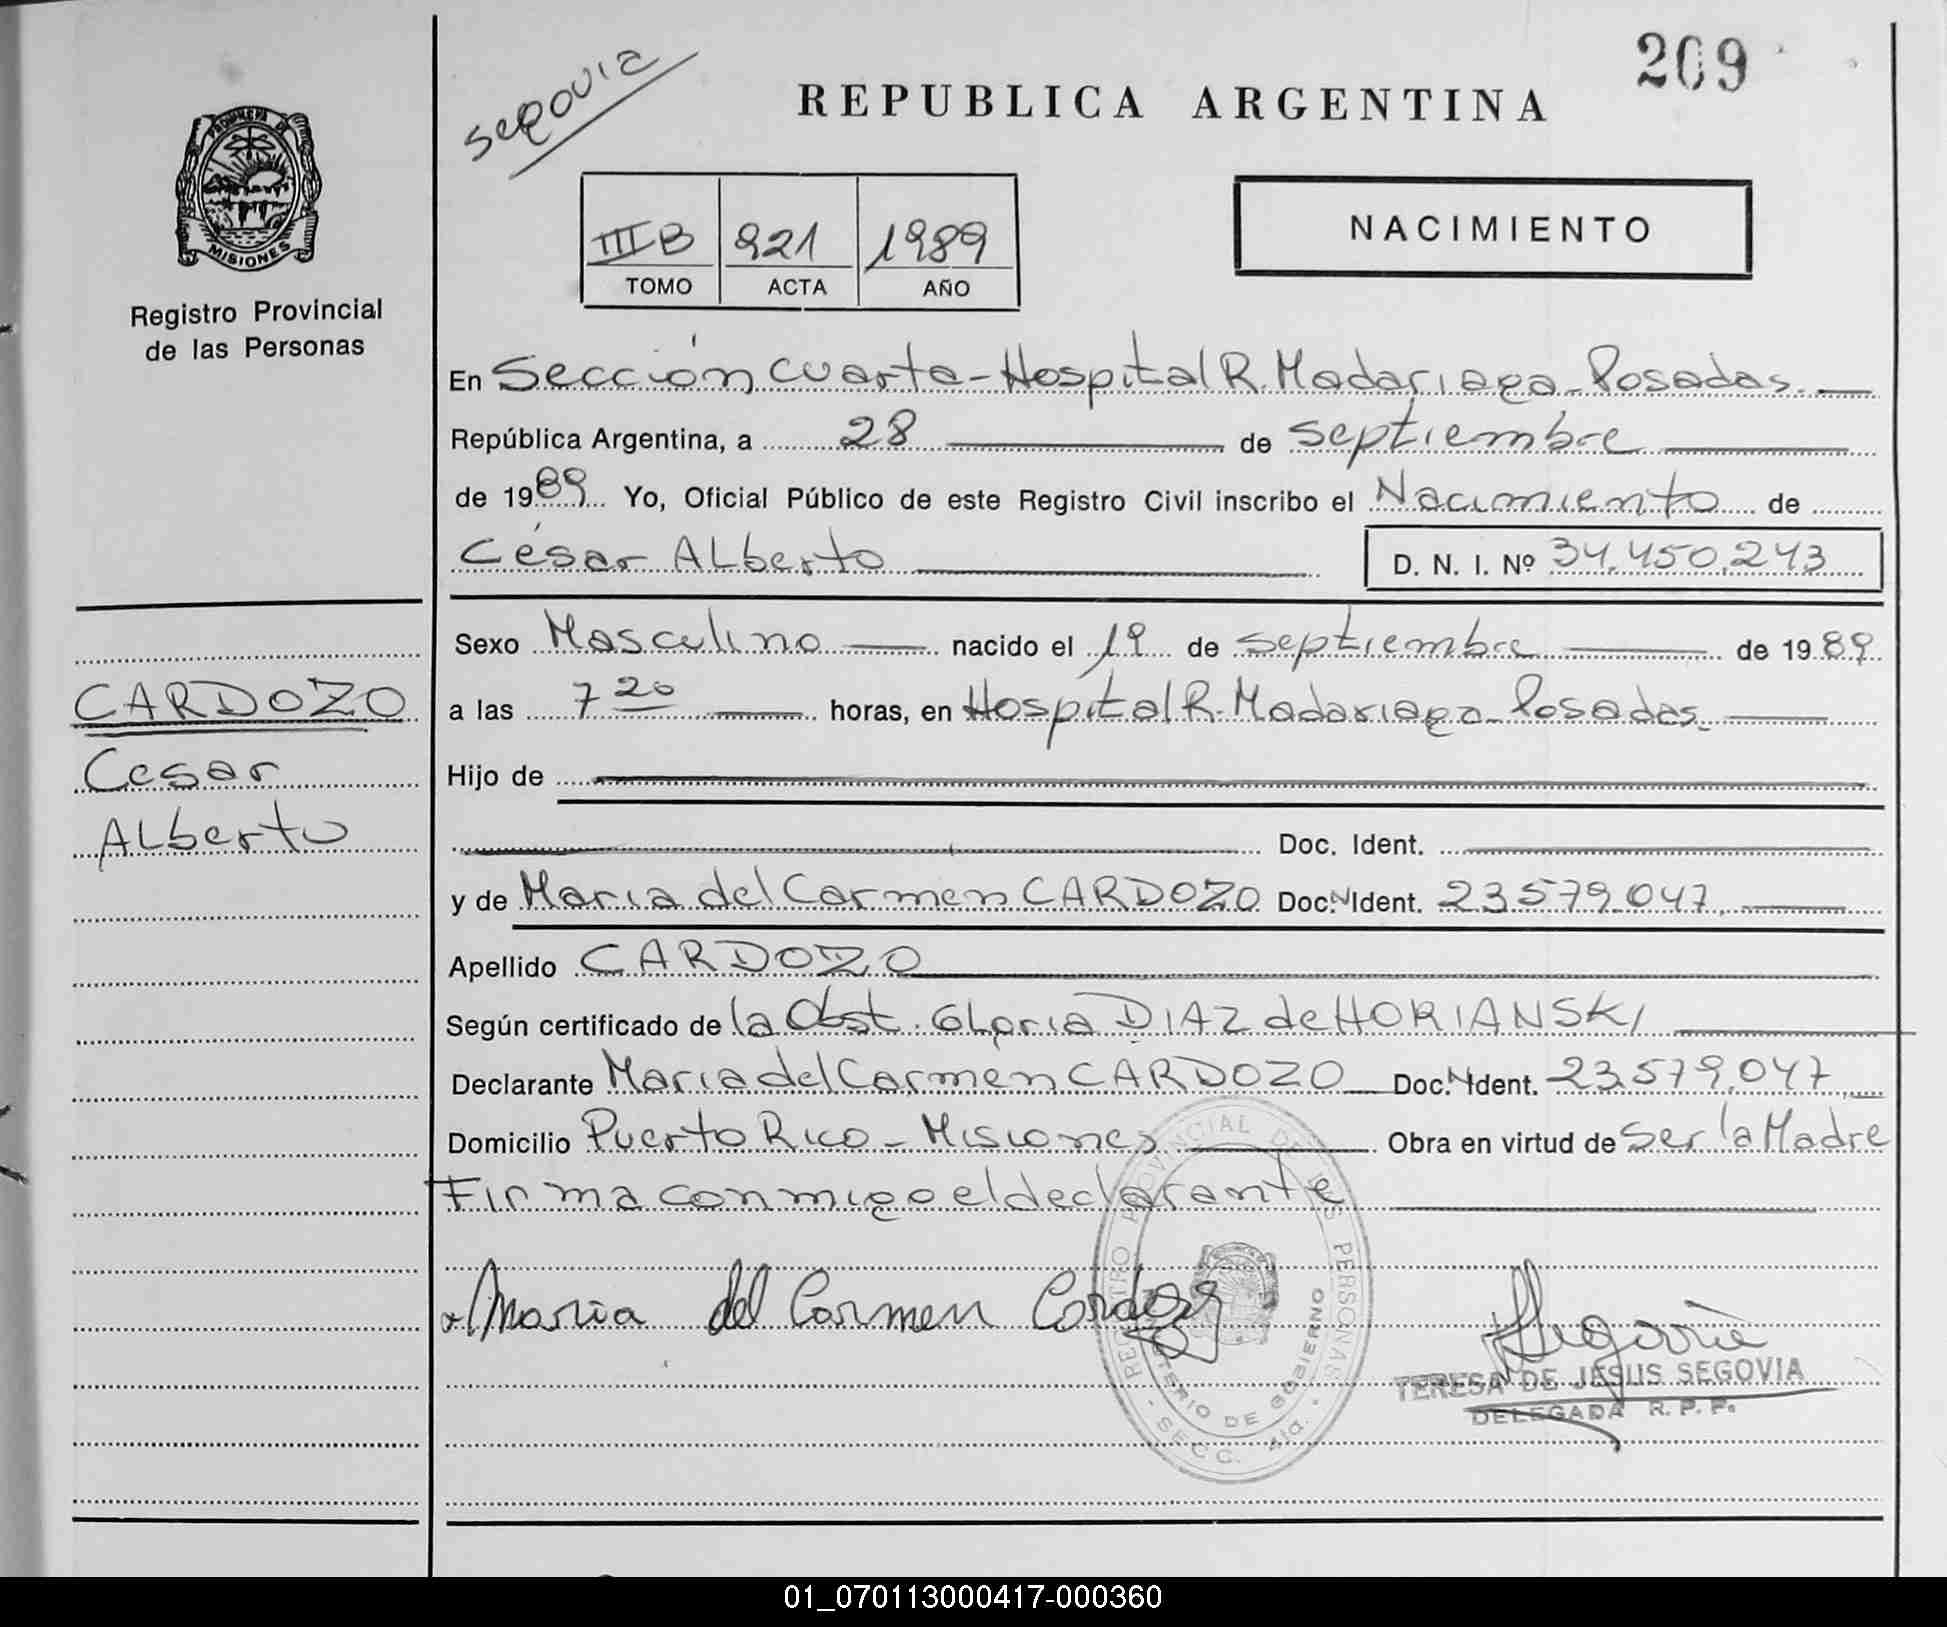 209
segovia
REPUBLICA ARGENTINA
PROVINCIA DE
MISIONES
Registro Provincial
de las Personas
III B 921 1989
TOMO ACTA AÑO
NACIMIENTO
En Sección Cuarta - Hospital R. Madariaga - Posadas.
República Argentina, a 28 de Septiembre
de 1989 Yo, Oficial Público de este Registro Civil inscribo el Nacimiento de
César Alberto D. N. I. Nº 34.450.243
Sexo Masculino nacido el 19 de Septiembre de 1989
CARDOZO
Cesar
Alberto
a las 7 20 horas, en Hospital R. Madariaga - Posadas.
Hijo de
Doc. Ident.
y de Maria del Carmen CARDOZO Doc. N Ident. 23.579.047
Apellido CARDOZO
Según certificado de la Obst. Gloria DIAZ de HORIANSKI
Declarante Maria del Carmen CARDOZO Doc. N Ident. 23.579.047
Domicilio Puerto Rico - Misiones Obra en virtud de Ser la Madre
Firma conmigo el declarante
Maria del Carmen Cardozo
REGISTRO PROVINCIAL DE LAS PERSONAS
MINISTERIO DE GOBIERNO
SECC. 4ta.
Segovia
TERESA DE JESUS SEGOVIA
DELEGADA R. P. P.
01_070113000417-000360